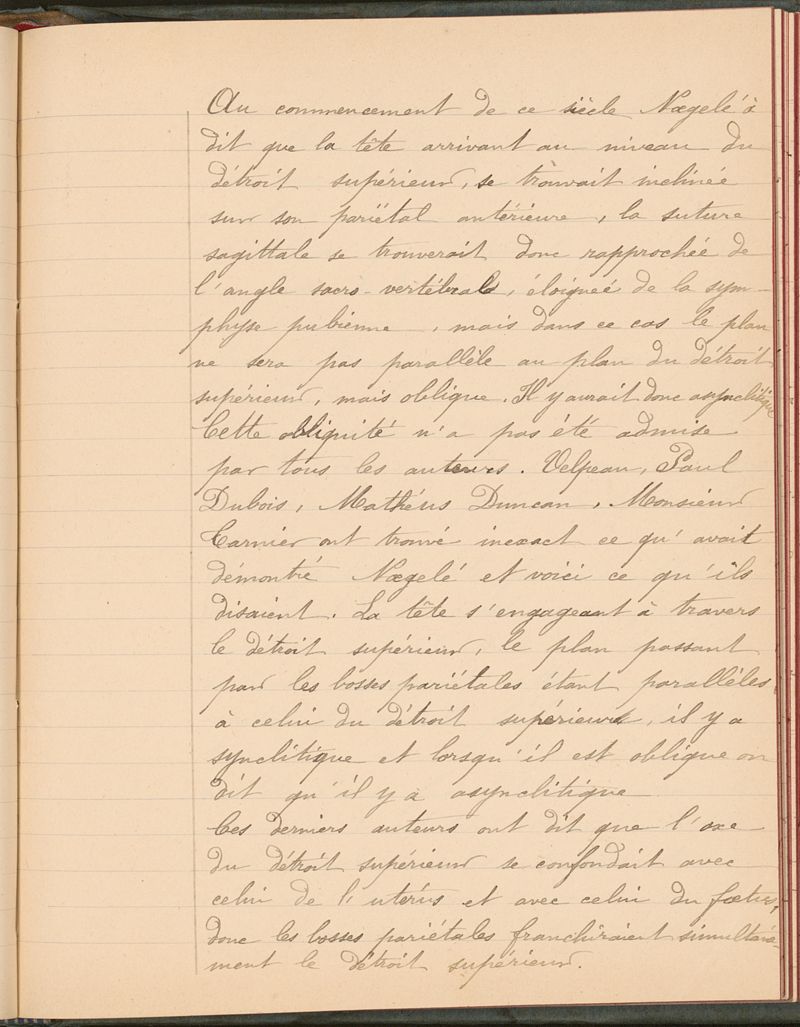 Au commencement de ce siècle Nægelé à
dit que la tête arrivant au niveau du
détroit supérieur, se trouvait inclinée
sur son pariétal antérieure, la suture
sagittale se trouverait donc rapprochée de
l'angle sacro-vertébrale, éloigneé de la sym-
physe pubienne, mais dans ce cas le plan
ne sera pas parallèle au plan du détroit
supérieur, mais oblique. Il y aurait donc asynclitique
Cette obliquité n'a pas été admise
par tous les auteurs. Velpeau, Paul
Dubois, Mathéus Duncan, Monsieur
Tarnier ont trouvé inexact ce qu'avait
démontré Nægelé et voici ce qu'ils
disaient. La tête s'engageant à travers
le détroit supérieur, le plan passant
par les bosses pariétales étant parallèles
à celui du détroit supérieur, il y a
synclitique et lorsqu'il est oblique on
dit qu'il y a asynclitique
Ces derniers auteurs ont dit que l'axe
du détroit supérieur se confondait avec
celui de l'utérus et avec celui du fœtus,
donc les bosses pariétales franchiraient simultané-
ment le détroit supérieur.